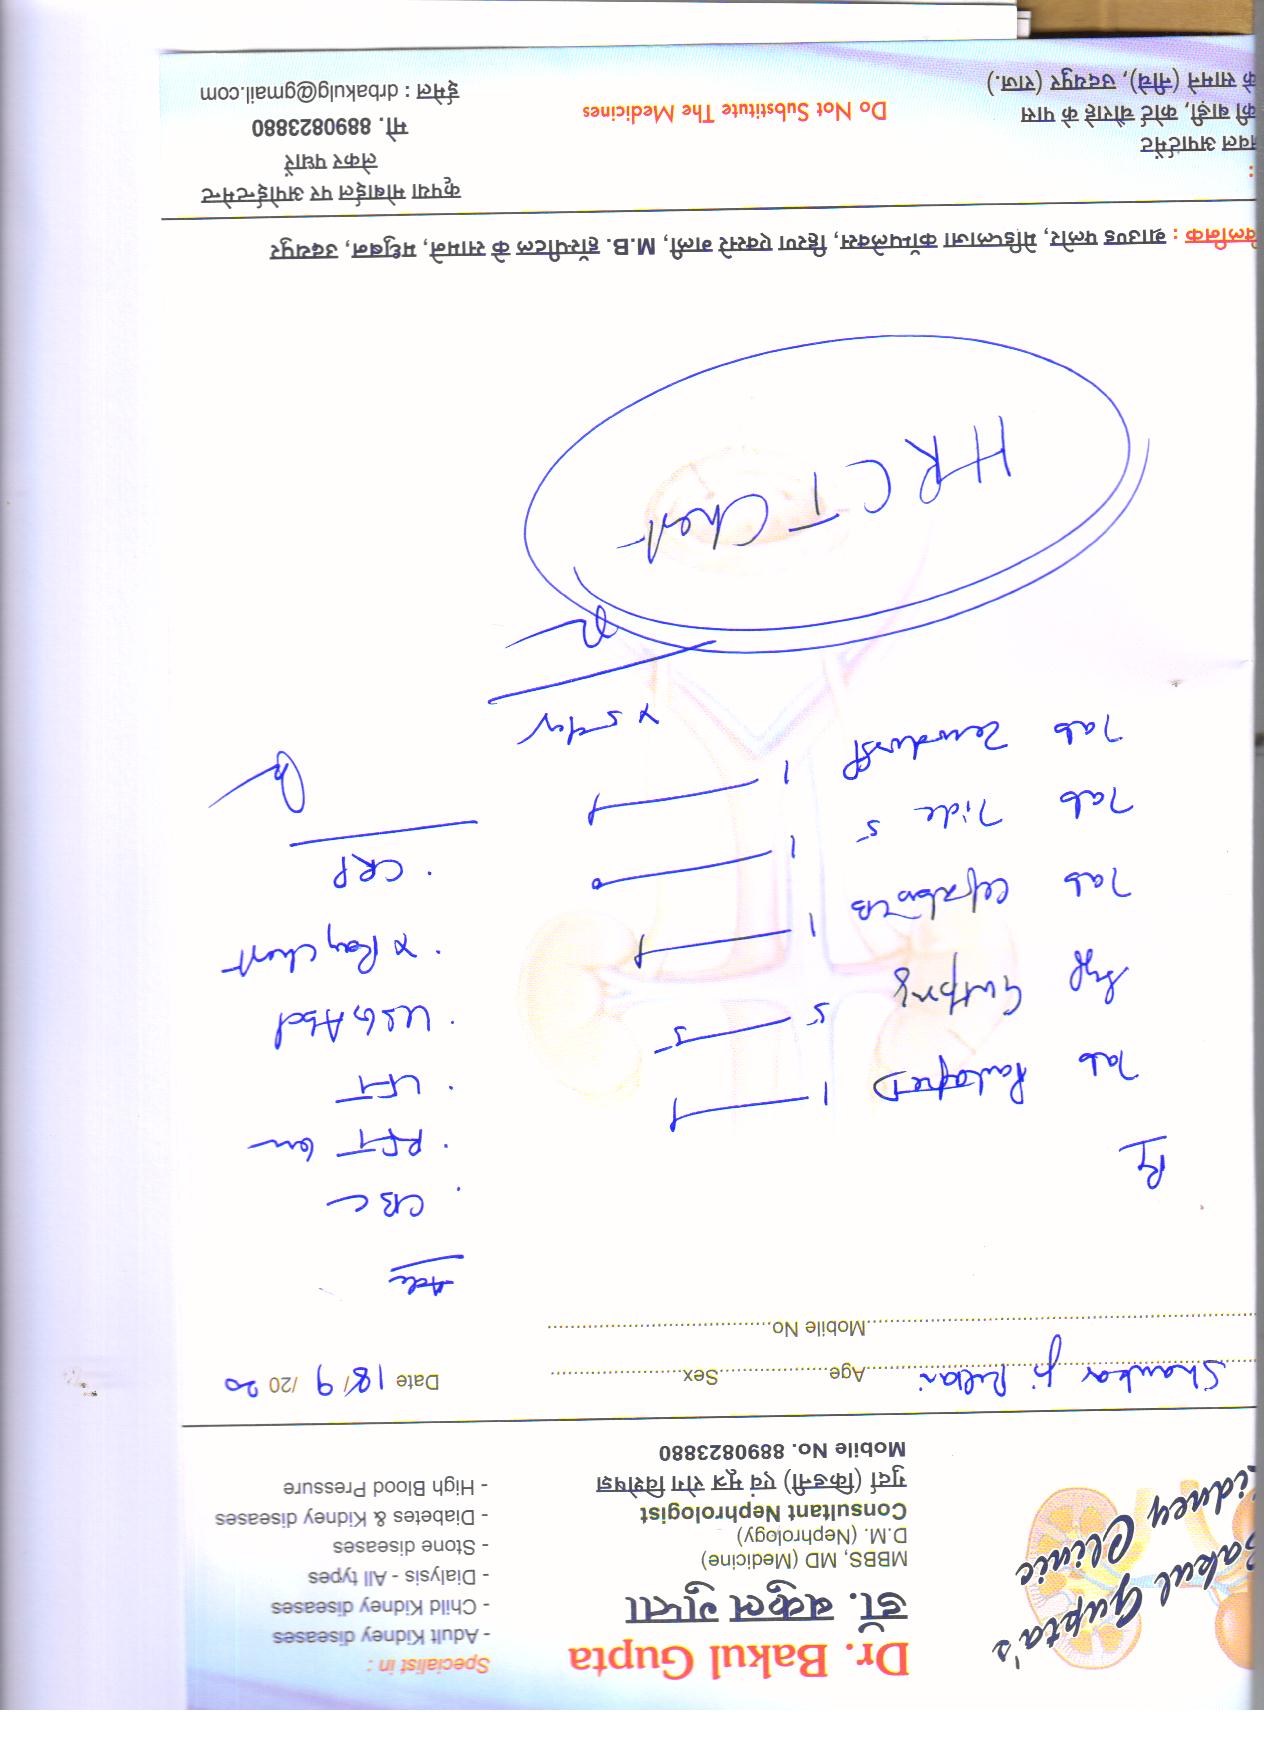 Bakul Gupta's
Kidney Clinic
Dr. Bakul Gupta
डॉ. बकुल गुप्ता
MBBS, MD (Medicine)
D.M. (Nephrology)
Consultant Nephrologist
गुर्दा (किडनी) एवं मूत्र रोग विशेषज्ञ
Mobile No. 8890823880
Specialist in :
- Adult Kidney diseases
- Child Kidney diseases
- Dialysis - All types
- Stone diseases
- Diabetes & Kidney diseases
- High Blood Pressure
Shankar ji Age Sex
Date 18/9/2020
Mobile No.
Adv
. CBC
. RFT
. LFT
. USG Abd
. X Ray Chest
. CRP
Rx
Tab 1 — 1
Syp 5 — 5
Tab 1 — 1
Tab Tide 5 1 — 0
Tab 1 — 1
x 5 day
HRCT Chest
क्लीनिक : ग्राउण्ड फ्लोर, मेडिप्लाजा कॉम्पलेक्स, हिरण एक्सरे गली, M.B. हॉस्पीटल के सामने, मधुबन, उदयपुर
:
अपार्टमेंट
की बाड़ी, कोर्ट चौराहे के पास
के सामने (नीचे), उदयपुर (राज.)
Do Not Substitute The Medicines
कृपया मोबाईल पर अपोईन्टमेन्ट
लेकर पधारें
मो. 8890823880
ईमेल : drbakulg@gmail.com